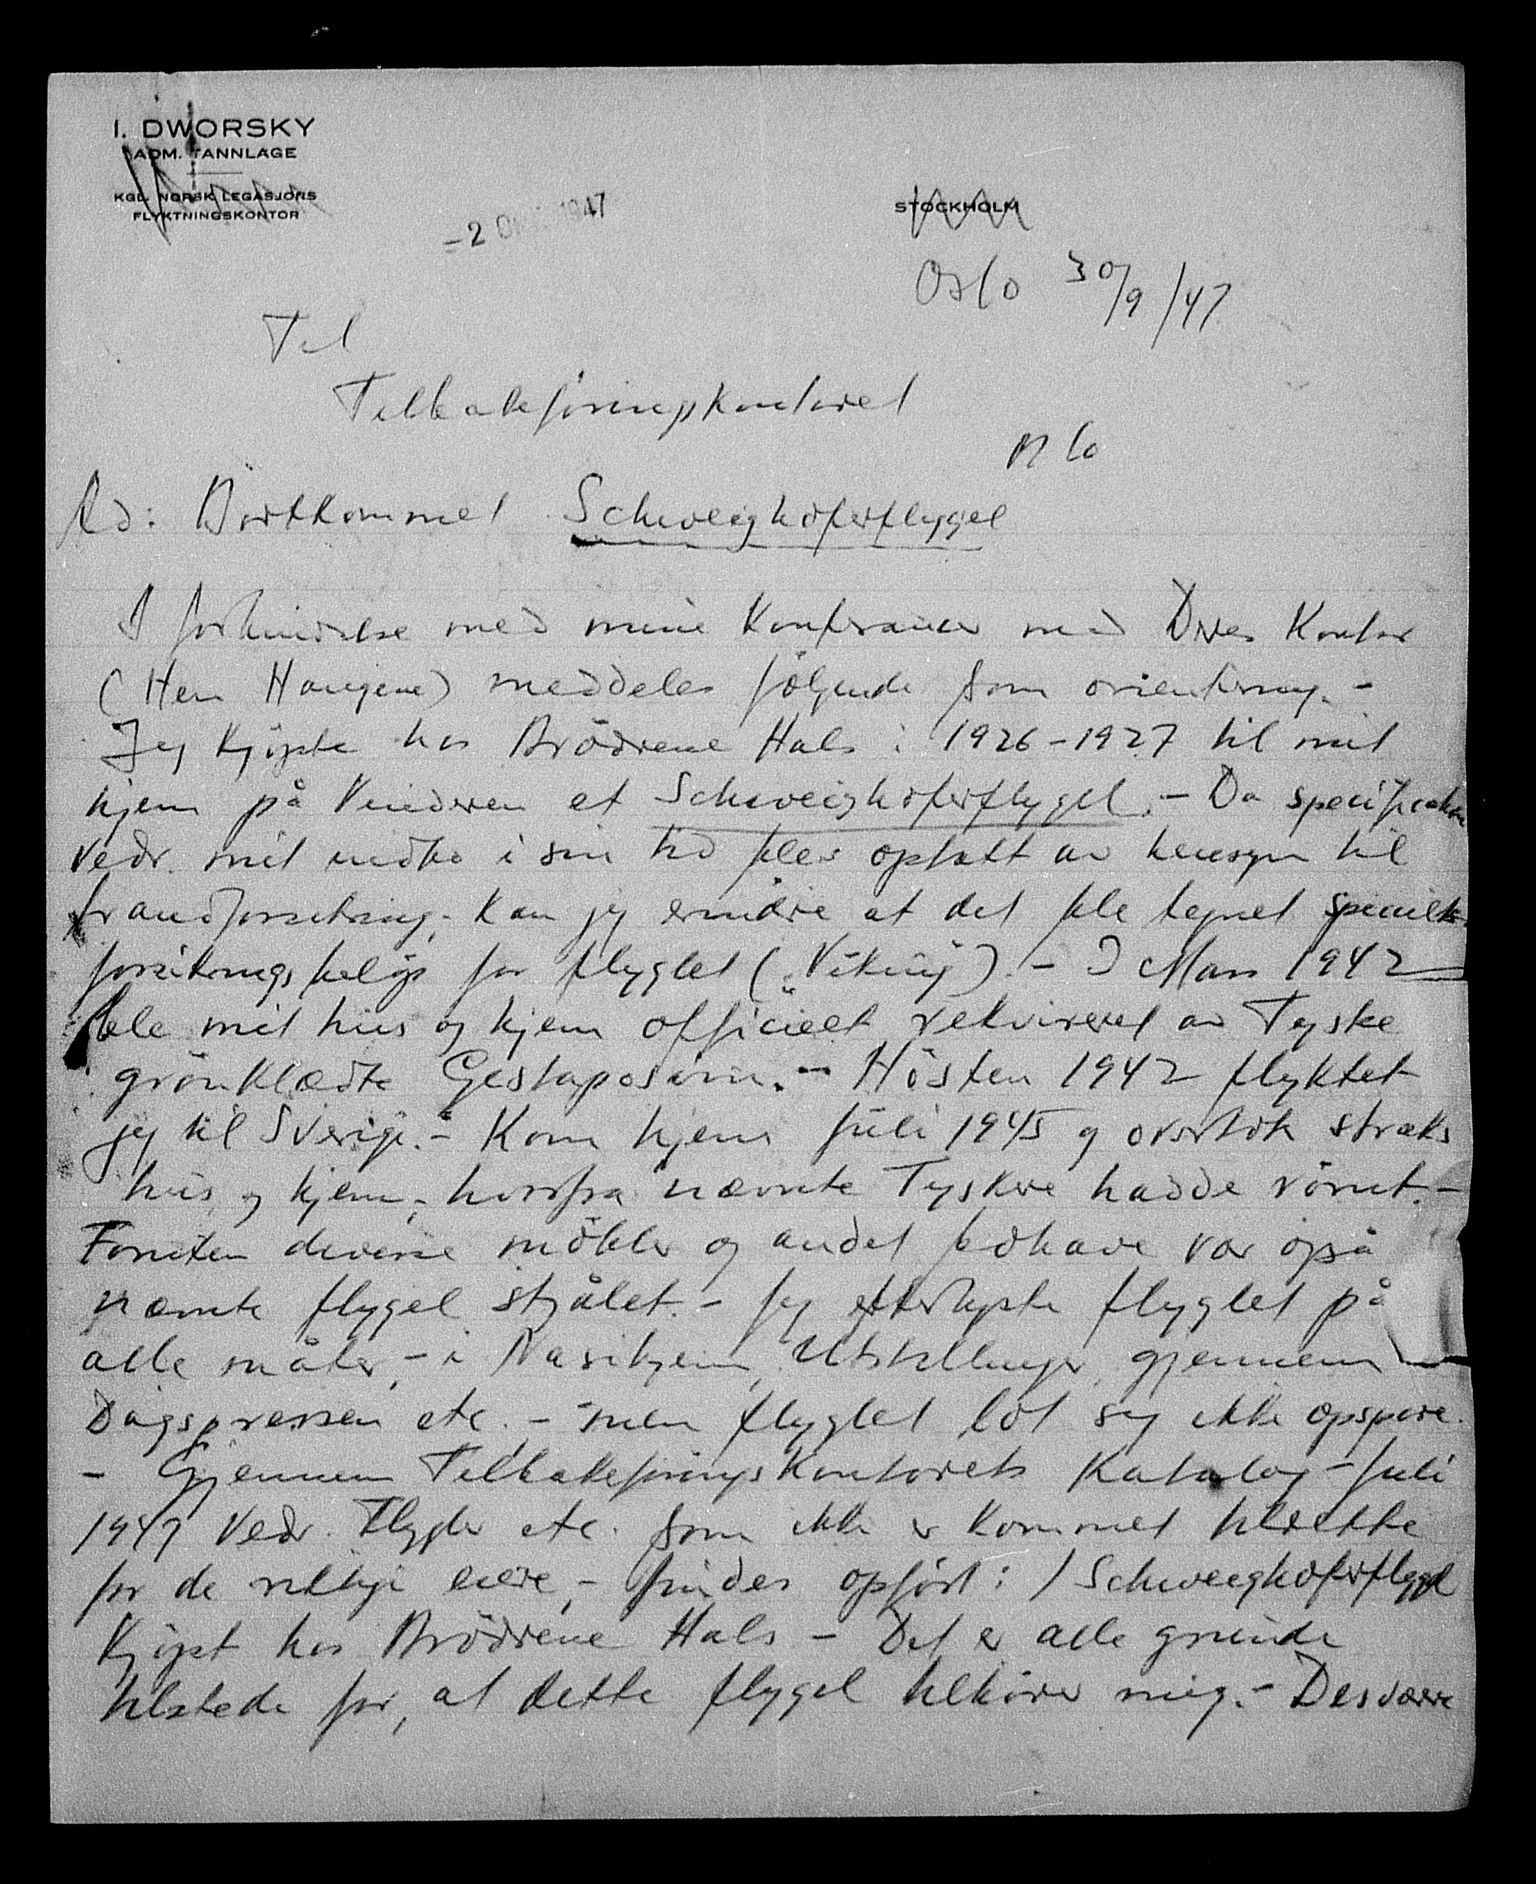 I. DWORSKY
ADM. TANNLÆGE
KGL. NORSK LEGASJONS
FLYKTNINGSKONTOR
STOCKHOLM
-2 OKT. 1947
Oslo 30/9/47
Til
Tilbakeføringskontoret
Ad: Bortkommet Schweighoferflygel
I forbindelse med mine Konferancer med Deres Kontor
(Herr Haugene) meddeles følgende som orientering. -
Jeg kjøpte hos Brödrene Hals i 1926-1927 til mit
hjem på Vinderen et Schweighoferflygel. - Da specifikation
vedr. mit indbo i sin tid blev optatt av hensyn til
brandforsikring, kan jeg erindre at det ble tegnet speciell
forsikringsbeløp for flyglet („Viking"). - I Mars 1942
ble mit hus og hjem officielt rekvireret av Tyske
grönklædte Gestaposvin. - Hösten 1942 flyktet
jeg til Sverige. - Kom hjem Juli 1945 og overtok straks
hus og hjem, hvorfra nævnte Tyskere hadde römt. -
Foruten diverse möbler og andet bohave var også
nævnte flygel stjålet. - Jeg efterlyste flyglet på
alle måter, - i Nasihjem, Utstillinger, gjennem
Dagspressen etc. - men flyglet lot sig ikke opspore.
- Gjennem Tilbakeføringskontorets Katalog - Juli
1947 vedr. Flygler etc. som ikke er kommet tilrette
for de rettige eiere, - findes opført: 1 Schweighoferflygel
Kjøpt hos Brödrene Hals - Det er alle grunde
tilstede for, at dette flygel tilhörer mig. - Desværre